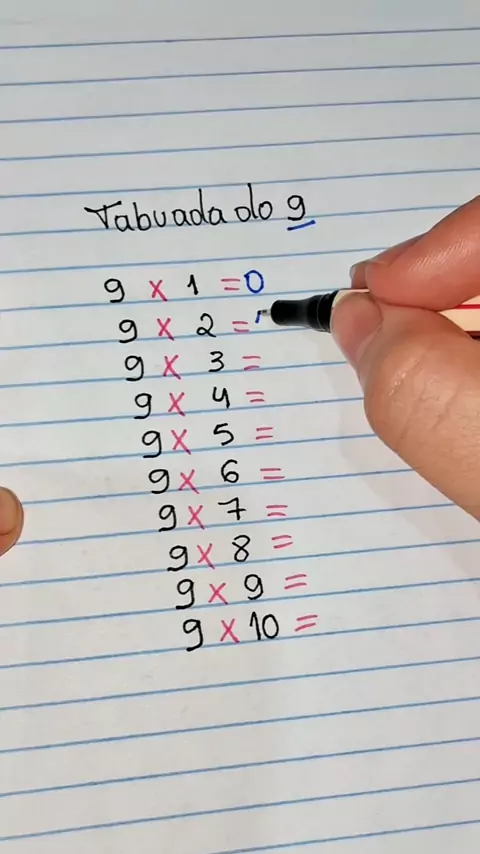 Tabuada do 9
9 x 1 = 0
9 x 2 =
9 x 3 =
9 x 4 =
9 x 5 =
9 x 6 =
9 x 7 =
9 x 8 =
9 x 9 =
9 x 10 =